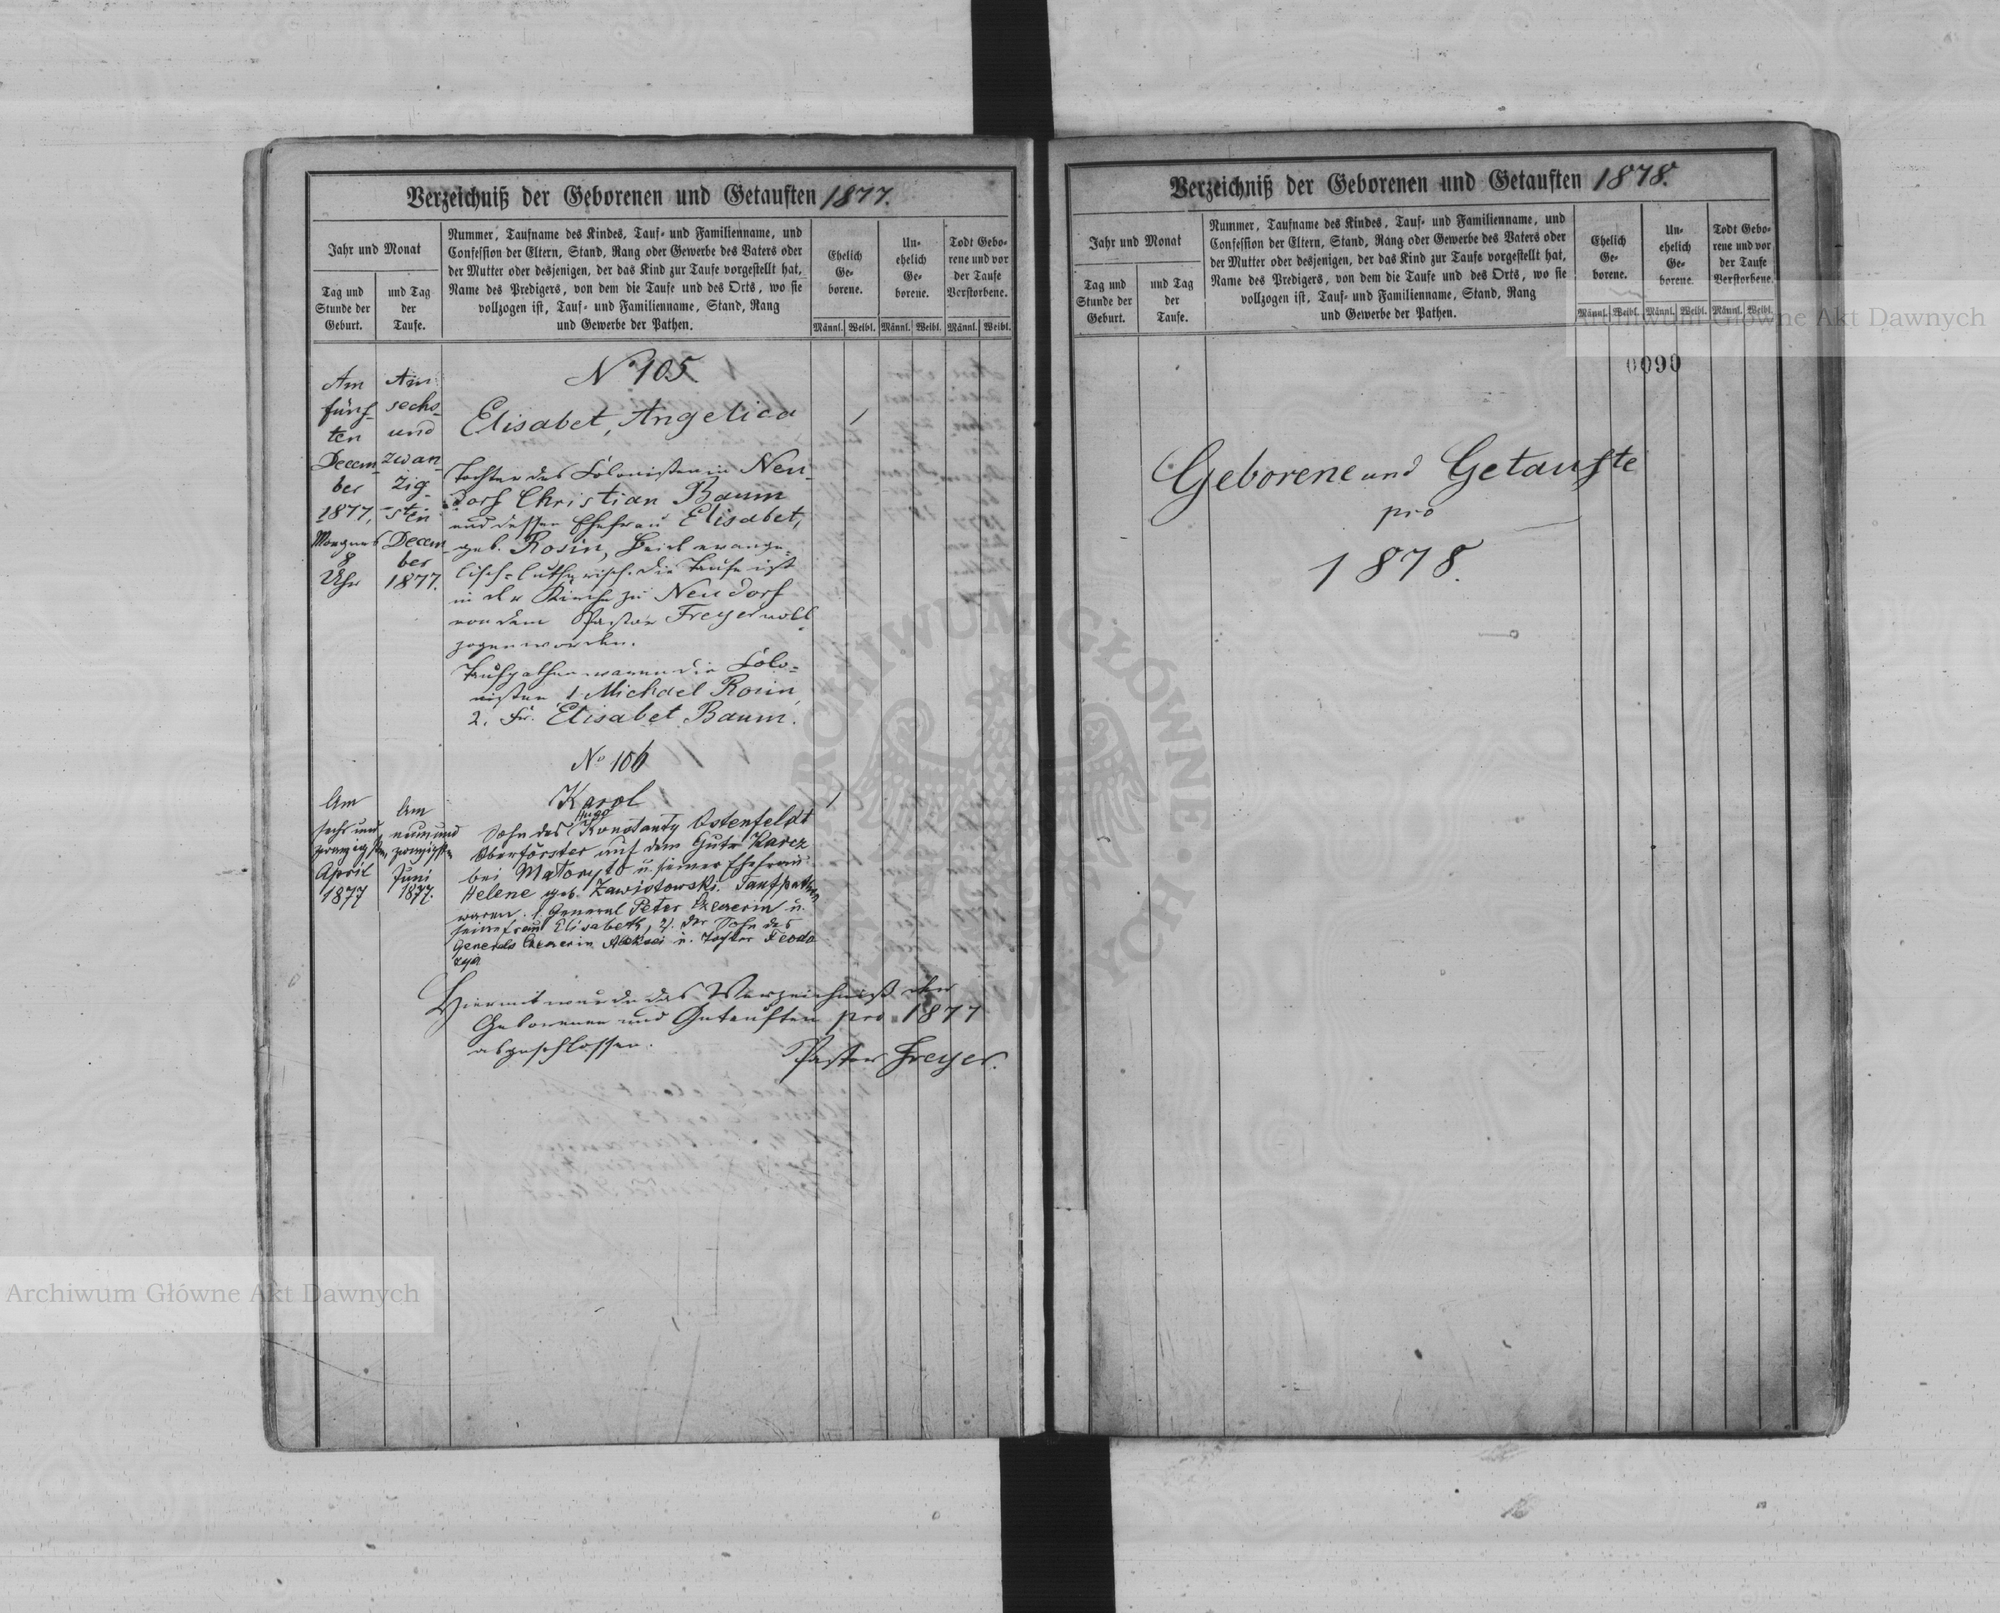 Verzeichniß der Geborenen und Getauften 1877.
Jahr und Monat
Tag und
Stunde der
Geburt.
und Tag
der
Taufe.
Nummer, Taufname des Kindes, Tauf- und Familienname, und
Confession der Eltern, Stand, Rang oder Gewerbe des Vaters oder
der Mutter oder desjenigen, der das Kind zur Taufe vorgestellt hat,
Name des Predigers, von dem die Taufe und des Orts, wo sie
vollzogen ist, Tauf- und Familienname, Stand, Rang
und Gewerbe der Pathen.
Ehelich
Ge-
borene.
Un-
ehelich
Ge-
borene.
Todt Gebo-
rene und vor
der Taufe
Verstorbene.
Männl. Weibl. Männl. Weibl. Männl. Weibl.
Am
fünf-
ten
Decem-
ber
1877,
Morgens
8
Uhr
Am
sechs-
und
zwan-
zig-
sten
Decem-
ber
1877.
No 105
Elisabet, Angelica
Tochter des Colonisten in Neu-
dorf Christian Baum
und dessen Ehefrau Elisabet,
geb. Rosin, beide evange-
lisch-lutherisch. Die Taufe ist
in der Kirche zu Neudorf
von dem Pastor Freyer voll-
zogen worden.
Taufpathen waren die Colo-
nisten 1. Michael Rosin,
2. Fr. Elisabet Baum.
Am
sechs und
zwanzigsten
April
1877
Am
neunund
zwanzigsten
Juni
1877.
No 106
Karol
Hugo
Sohn des Konstanty Ostenfeldt
Oberförster auf dem Gute Karcz
bei Małoryto u. seiner Ehefrau
Helene geb. Zawistowski. Taufpathen
waren: 1. General Peter u.
seine Frau Elisabeth, 2. der Sohn des
Generals Aleksei u. Tochter Feodo
zyja
Hiermit wurde das Verzeichniß der
Geborenen und Getauften pro 1877
abgeschlossen.
Pastor Freyer.
Verzeichniß der Geborenen und Getauften 1878.
Jahr und Monat
Tag und
Stunde der
Geburt.
und Tag
der
Taufe.
Nummer, Taufname des Kindes, Tauf- und Familienname, und
Confession der Eltern, Stand, Rang oder Gewerbe des Vaters oder
der Mutter oder desjenigen, der das Kind zur Taufe vorgestellt hat,
Name des Predigers, von dem die Taufe und des Orts, wo sie
vollzogen ist, Tauf- und Familienname, Stand, Rang
und Gewerbe der Pathen.
Ehelich
Ge-
borene.
Un-
ehelich
Ge-
borene.
Todt Gebo-
rene und vor
der Taufe
Verstorbene.
Männl. Weibl. Männl. Weibl. Männl. Weibl.
0090
Geborene und Getaufte
pro
1878.
Archiwum Główne Akt Dawnych
Archiwum Główne Akt Dawnych
ARCHIWUM GŁÓWNE AKT DAWNYCH